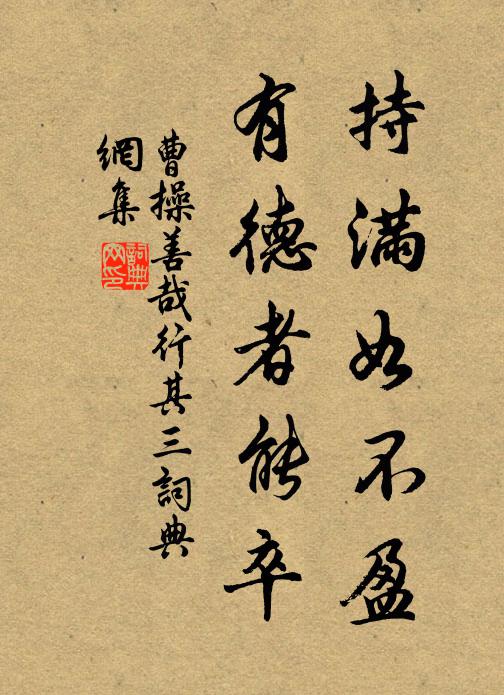 持滿如不盈
有德者能卒
曹操善哉行其三詞典
網集
詞典
网印